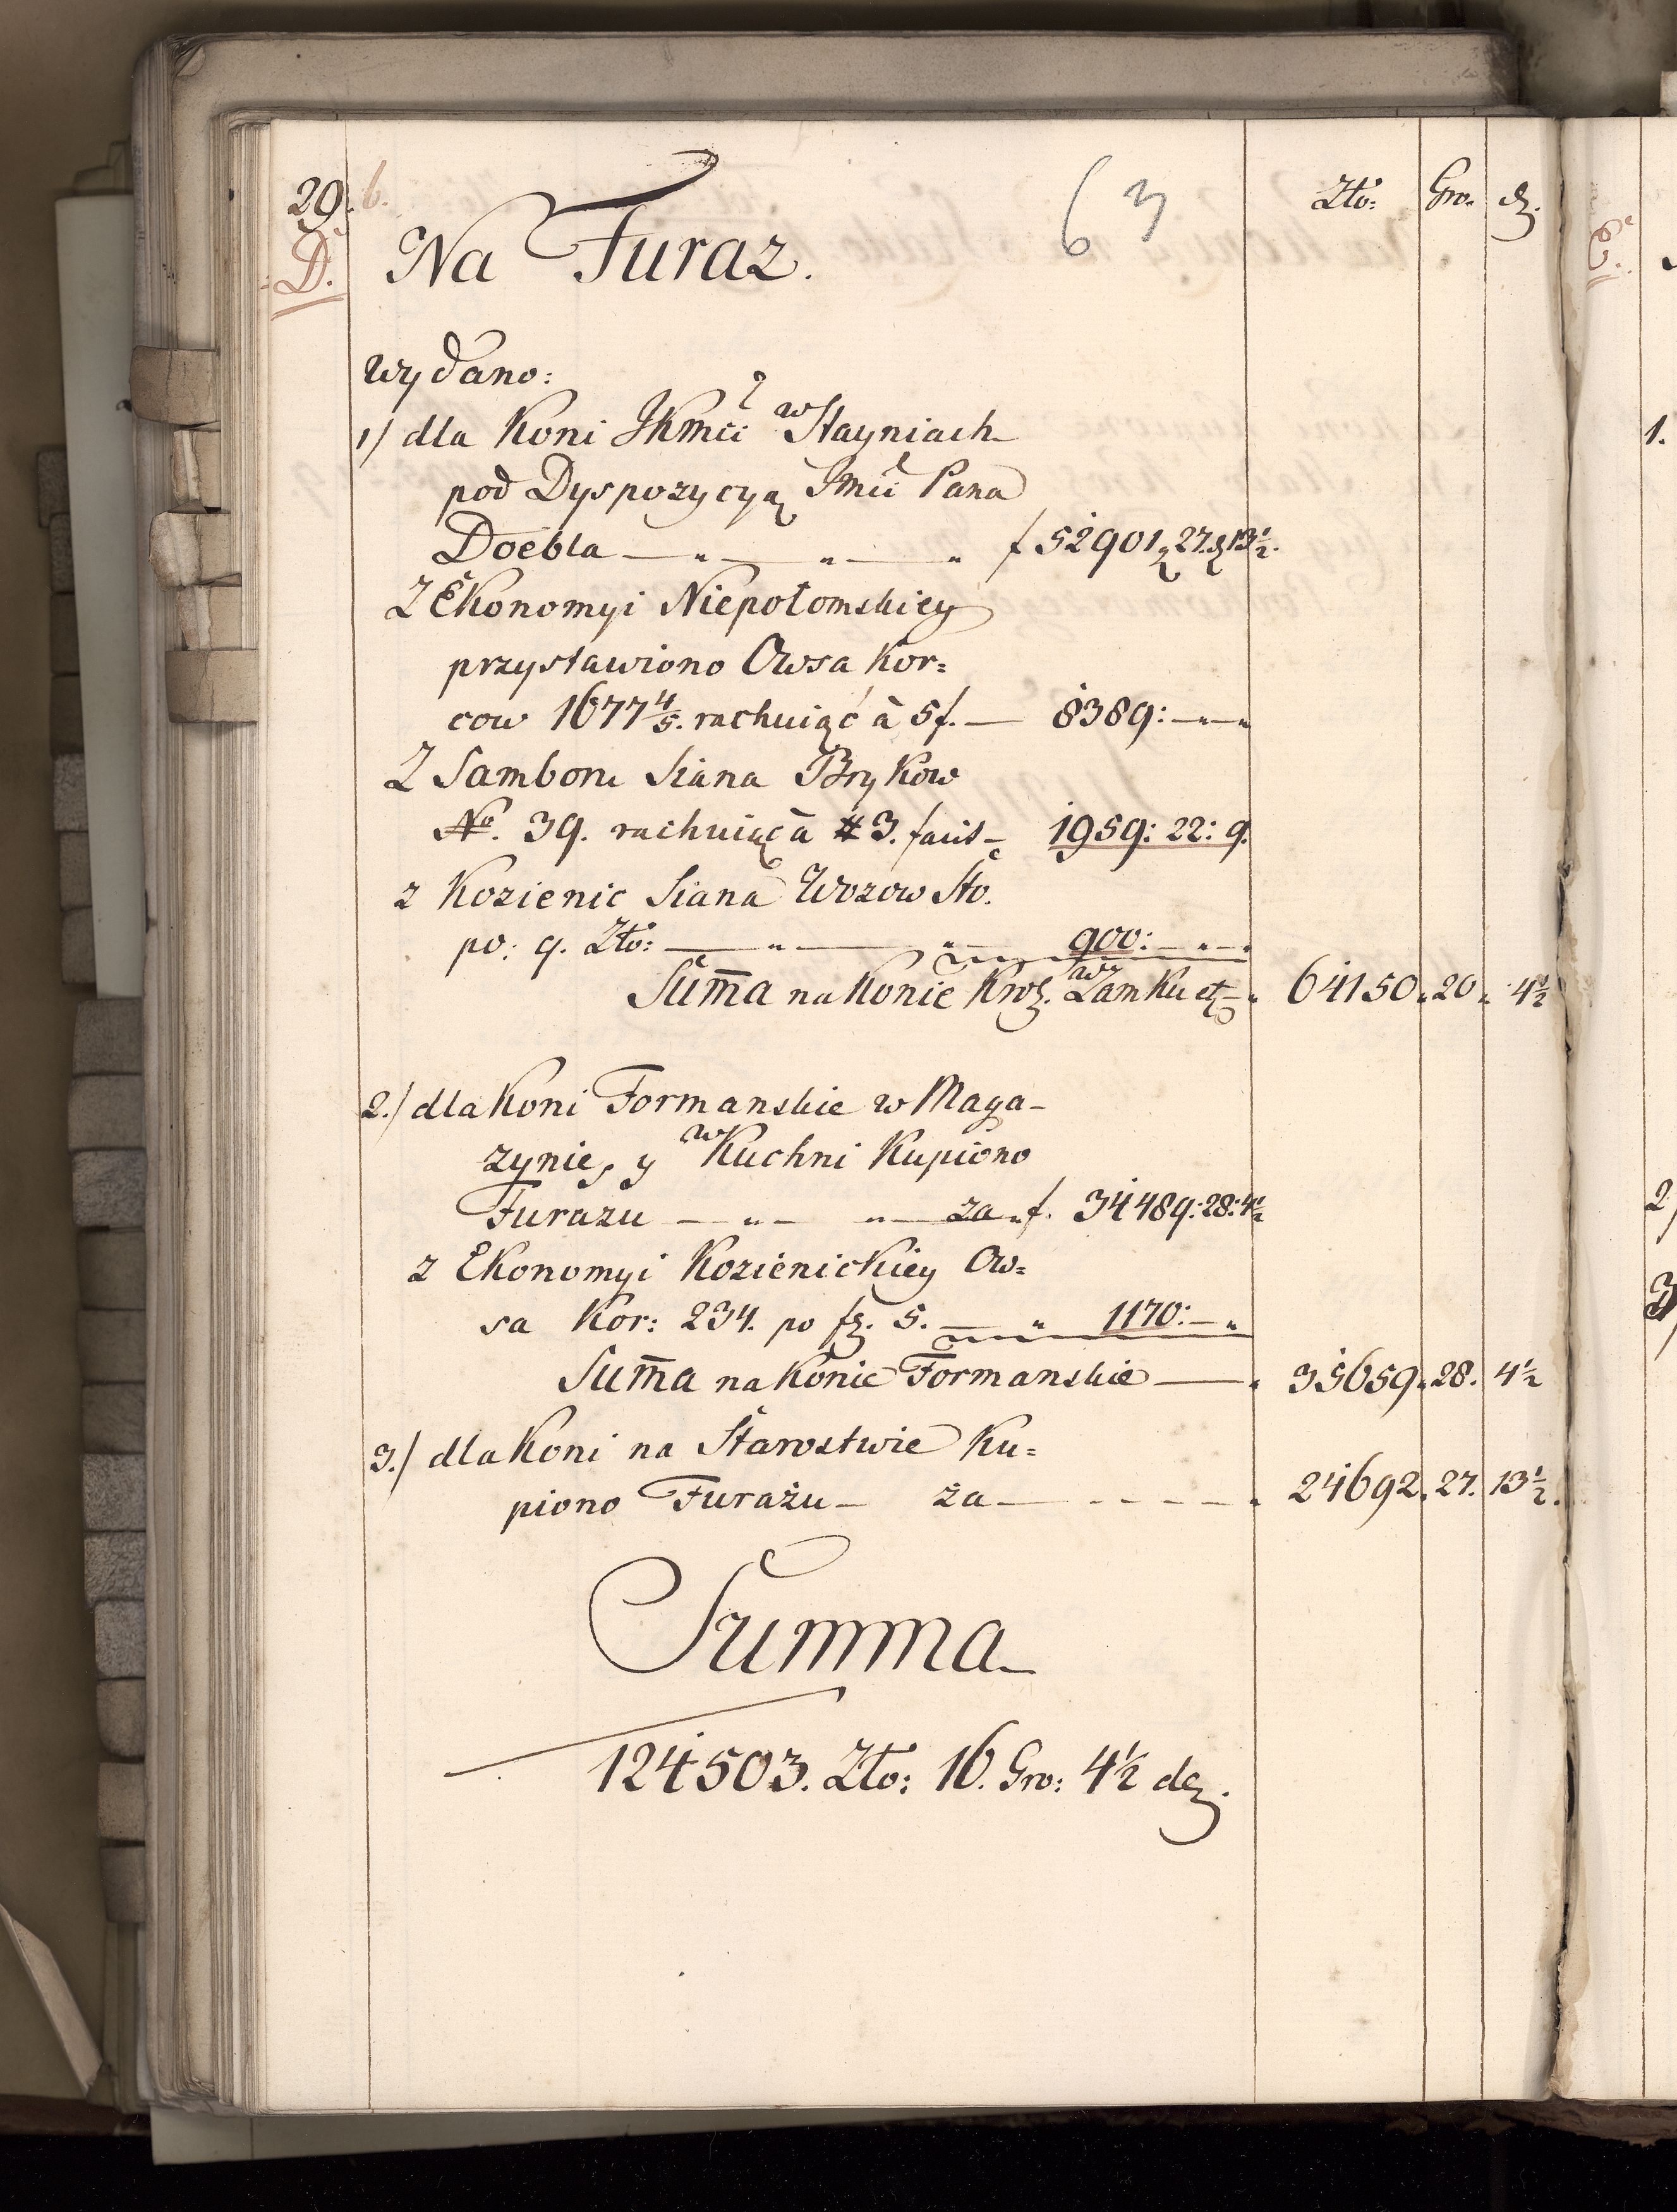 29. 6. 63 Zło: Gro. d.
D. Na Furaz.
wydano:
1/ dla Koni JKmci w Stayniach
pod Dyspozycyą Jmci Pana
Doebla — „ — „ — „ f 52901. 27. 13 1/2.
Z Ekonomyi Niepołomskiey
przystawiono Owsa Kor=
cow 1677 4/5. rachuiąć à 5 f. — 8389: — „ — „
Z Sambora Siana Brykow
No. 39. rachuiąc à # 3. facit — 1959: 22: 9.
z Kozienic Siana Wozow Sto.
po: 9. Zło: — „ — „ — 900: — „ — .
Sum̄a na Konie Krol. w Zamku — „ 64150 „ 20 „ 4 1/2
2./ dla Koni Formanskie w Maga-
zynie, y w Kuchni Kupiono
Furazu — „ — „ — za „ f. 34489: 28: 4 1/2
z Ekonomyi Kozienickiey Ow=
sa Kor: 234. po f. 5. — „ 1170: — „
Sum̄a na Konie Formanskie — . 35659 „ 28. 4 1/2
3./ dla Koni na Starostwie Ku=
piono Furażu — za — - - - - . 24692. 27. 13 1/2.
Summa
124503. Zło: 16. Gro: 4 1/2 d.
E.
1.
2/
3/